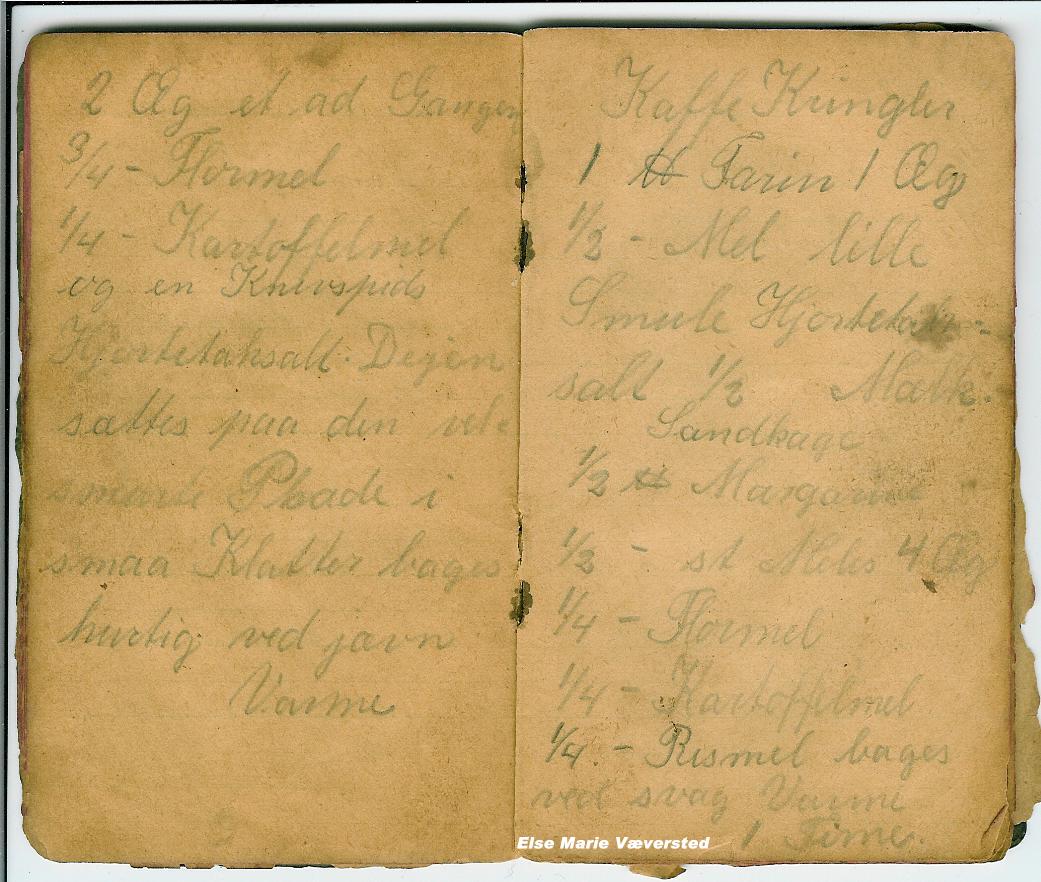 2 Æg et ad Gangen
3/4 - Flormel
1/4 - Kartoffelmel
og en Knivspids
Hjortetaksalt. Dejen
sættes paa den vel
smurte Plade i
smaa Klatter bages
hurtig ved jævn
Varme
Kaffe Kringler
1 ℔ Farin 1 Æg
1/2 - Mel lille
Smule Hjortetak-
salt 1/2 Mælk.
Sandkage
1/2 ℔ Margarine
1/2 - st Melis 4 Æg
1/4 - Flormel
1/4 - Kartoffelmel
1/4 - Rismel bages
ved svag Varme
1 Time.
Else Marie Væversted